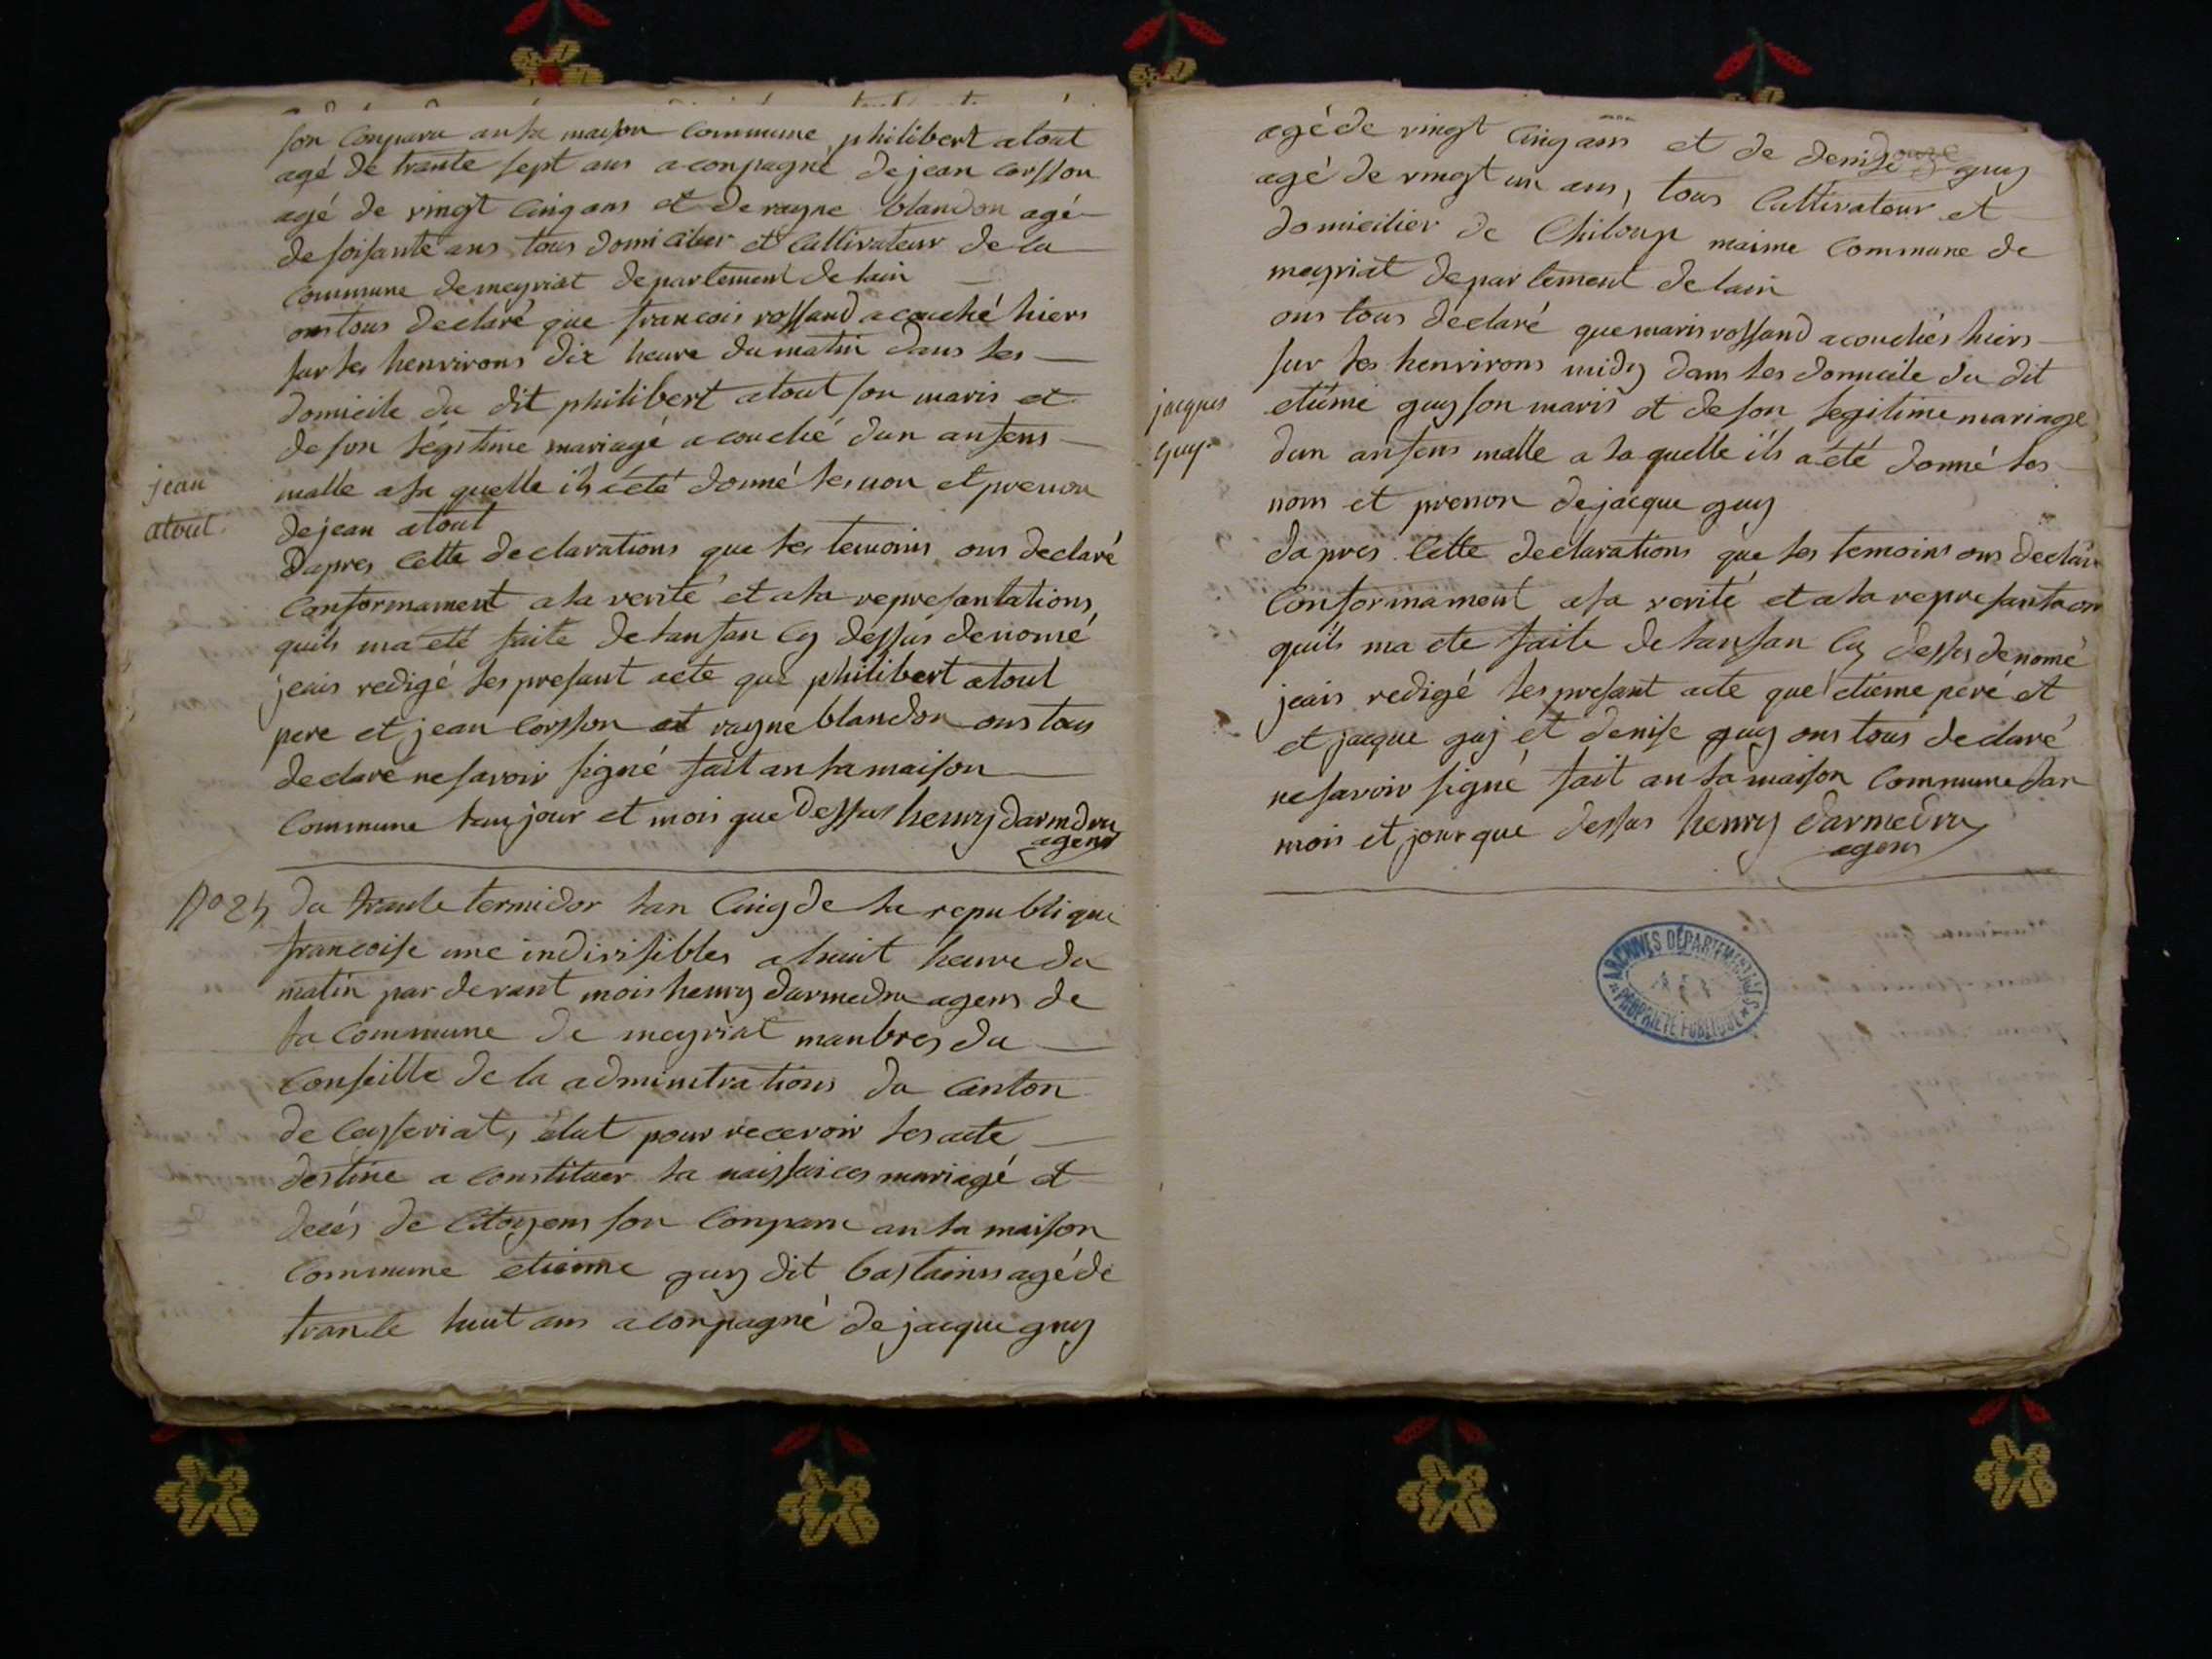 son Conparu an la maison Commune philibert atout
agé de trante sept ans aconpagné de jean Corsson
agé de vingt Cinq ans et de rayne blandon agé
de soisante ans tous domicilier et Cultivateur de la
Commune de meyriat departement de lain
ons tous declaré que francois rossand acouché hiers
sur les henvirons dix heure du matin dans les
domicile du dit philibert atout son maris et
de son légitime mariagé acouché dun ansens
jean
atout
malle a la quelle ils a été donné les non et prenon
de jean atout
Dapres Cette declarations que les temoins ons declaré
Conformament a la verité et a la represantations
quils ma eté faite de lansan Cy dessus denomé
jeais redigé les presant acte que philibert atout
pere et jean Corsson et rayne blandon ons tous
declaré ne savoir signé fait an la maison
Commune lan jour et mois que dessus henry darmedru
agens
No 24 du trante termidor lan Cinq de la republique
francoise une indivisibles a huit heure du
matin par devant mois henry darmedru agens de
la Commune de meyriat manbres du
Conseille de la adminitrations du Canton
de Ceyseriat, élut pour recevoir les acte
destine a Constituer la naissances mariagé et
decés de Citoyens son Conparu an la maison
Commune etienne guy dit bastainns agé de
trante huit ans aconpagné de jacque guy
agé de vingt Cinq ans et de denise guy
agé de vingt un ans, tous Cultivateur et
domicilier de Chiloup maime Commune de
meyriat departement de lain
ons tous déclaré que maris rossand acouchés hiers
sur les henvirons midy dans les domicile du dit
jacques
guy
etiene guy son maris et de son legitime mariage
dun ansens malle a la quelle ils a été donné les
nom et prenon de jacque guy
dapres Cette declarations que les temoins ons declaré
Conformament a la verité et a la represantaon
quils ma ete faite de lansan Cy dessus denomé
jeais redigé les presant acte que etiene peré et
et jacque guy et denise guy ons tous declaré
ne savoir signé fait an la maison Commune lan
mois et jour que dessus henry darmedru
agens
ARCHIVES DÉPARTEMENTALES
AIN
PROPRIÉTÉ PUBLIQUE